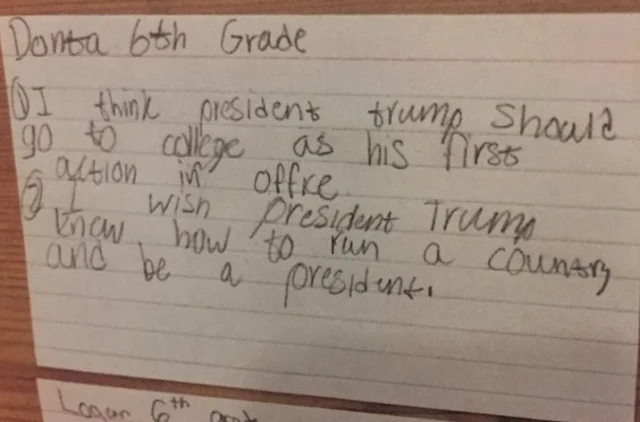 Donta 6th Grade
① I think president trump should
go to college as his first
action in offre
② I wish president Trump
knew how to run a country
and be a president.
Logan 6th